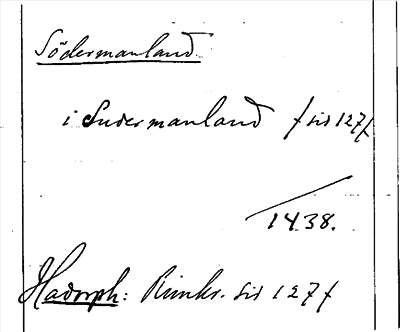 Södermanland
i Sudermanland /sid 127/
1438.
Hadorph: Rimkr. sid 127/